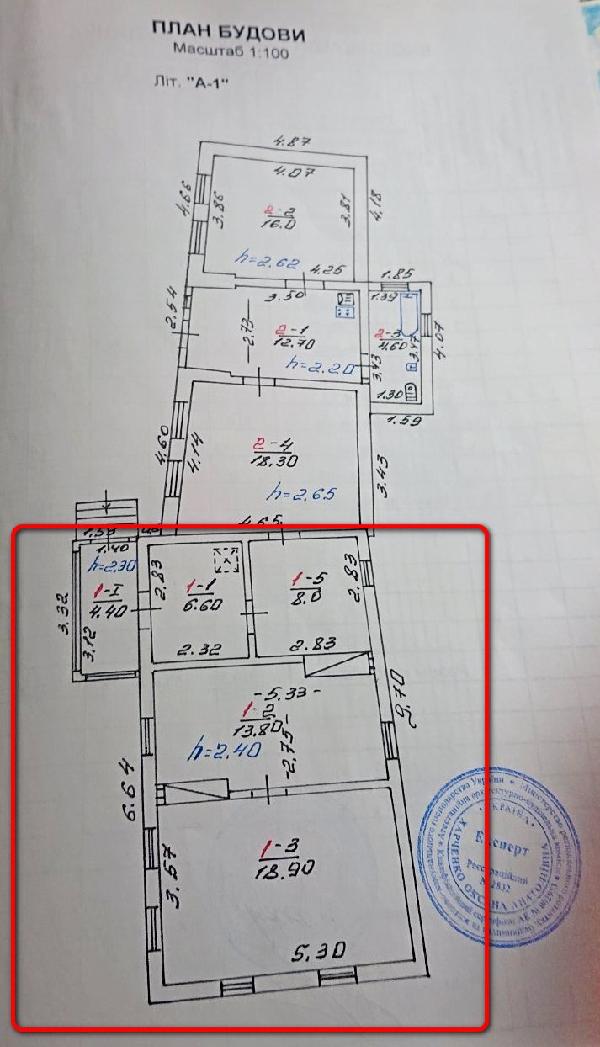 ПЛАН БУДОВИ
Масштаб 1:100
Літ. "А-1"
4.87
4.07
4.66
3.86
2-2
16.0
3.81
4.18
h=2.62
4.25
1.85
2.54
3.50
1.39
2.73
2-1
12.70
2-3
4.60
3.47
4.07
h=2.20
3.43
1.30
1.59
4.60
4.14
2-4
18.30
3.43
h=2.65
4.65
1.40
h=2.30
2.83
1-1
6.60
1-5
8.0
2.83
1-I
4.40
3.32
3.12
2.32
2.83
-5.33-
9.70
1-2
13.80
h=2.40
2.75
6.64
1-3
18.90
3.57
5.30
Експерт
ХАРЧЕНКО ОКСАНА
УКРАЇНА